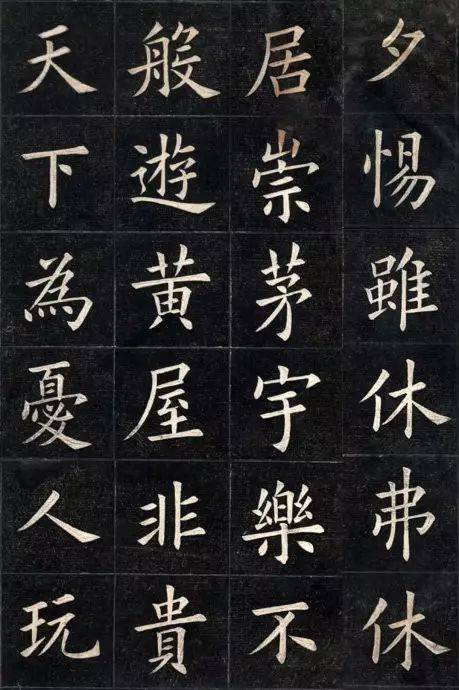 夕惕雖休弗休
居崇茅宇樂不
般遊黄屋非貴
天下為憂人玩